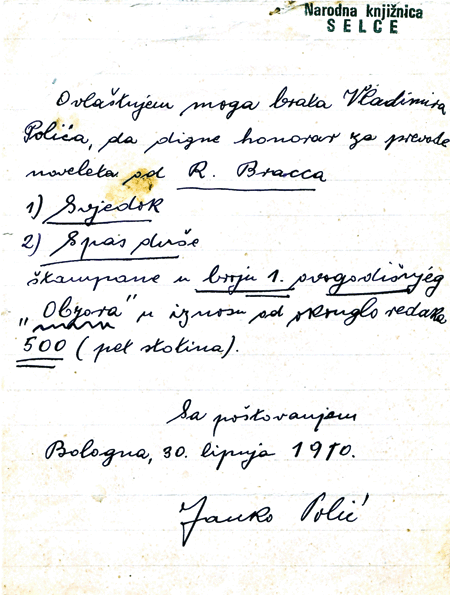 Narodna knjižnica
SELCE
Ovlašćujem moga brata Vladimira
Polića, da digne honorar za prevode
noveleta od R. Bracca
1) Svjedok
2) Spas duše
štampane u broju 1. ovogodišnjeg
"Obzora" u iznosu od okruglo redaka
500 (pet stotina).
Sa poštovanjem
Bologna, 30. lipnja 1910.
Janko Polić